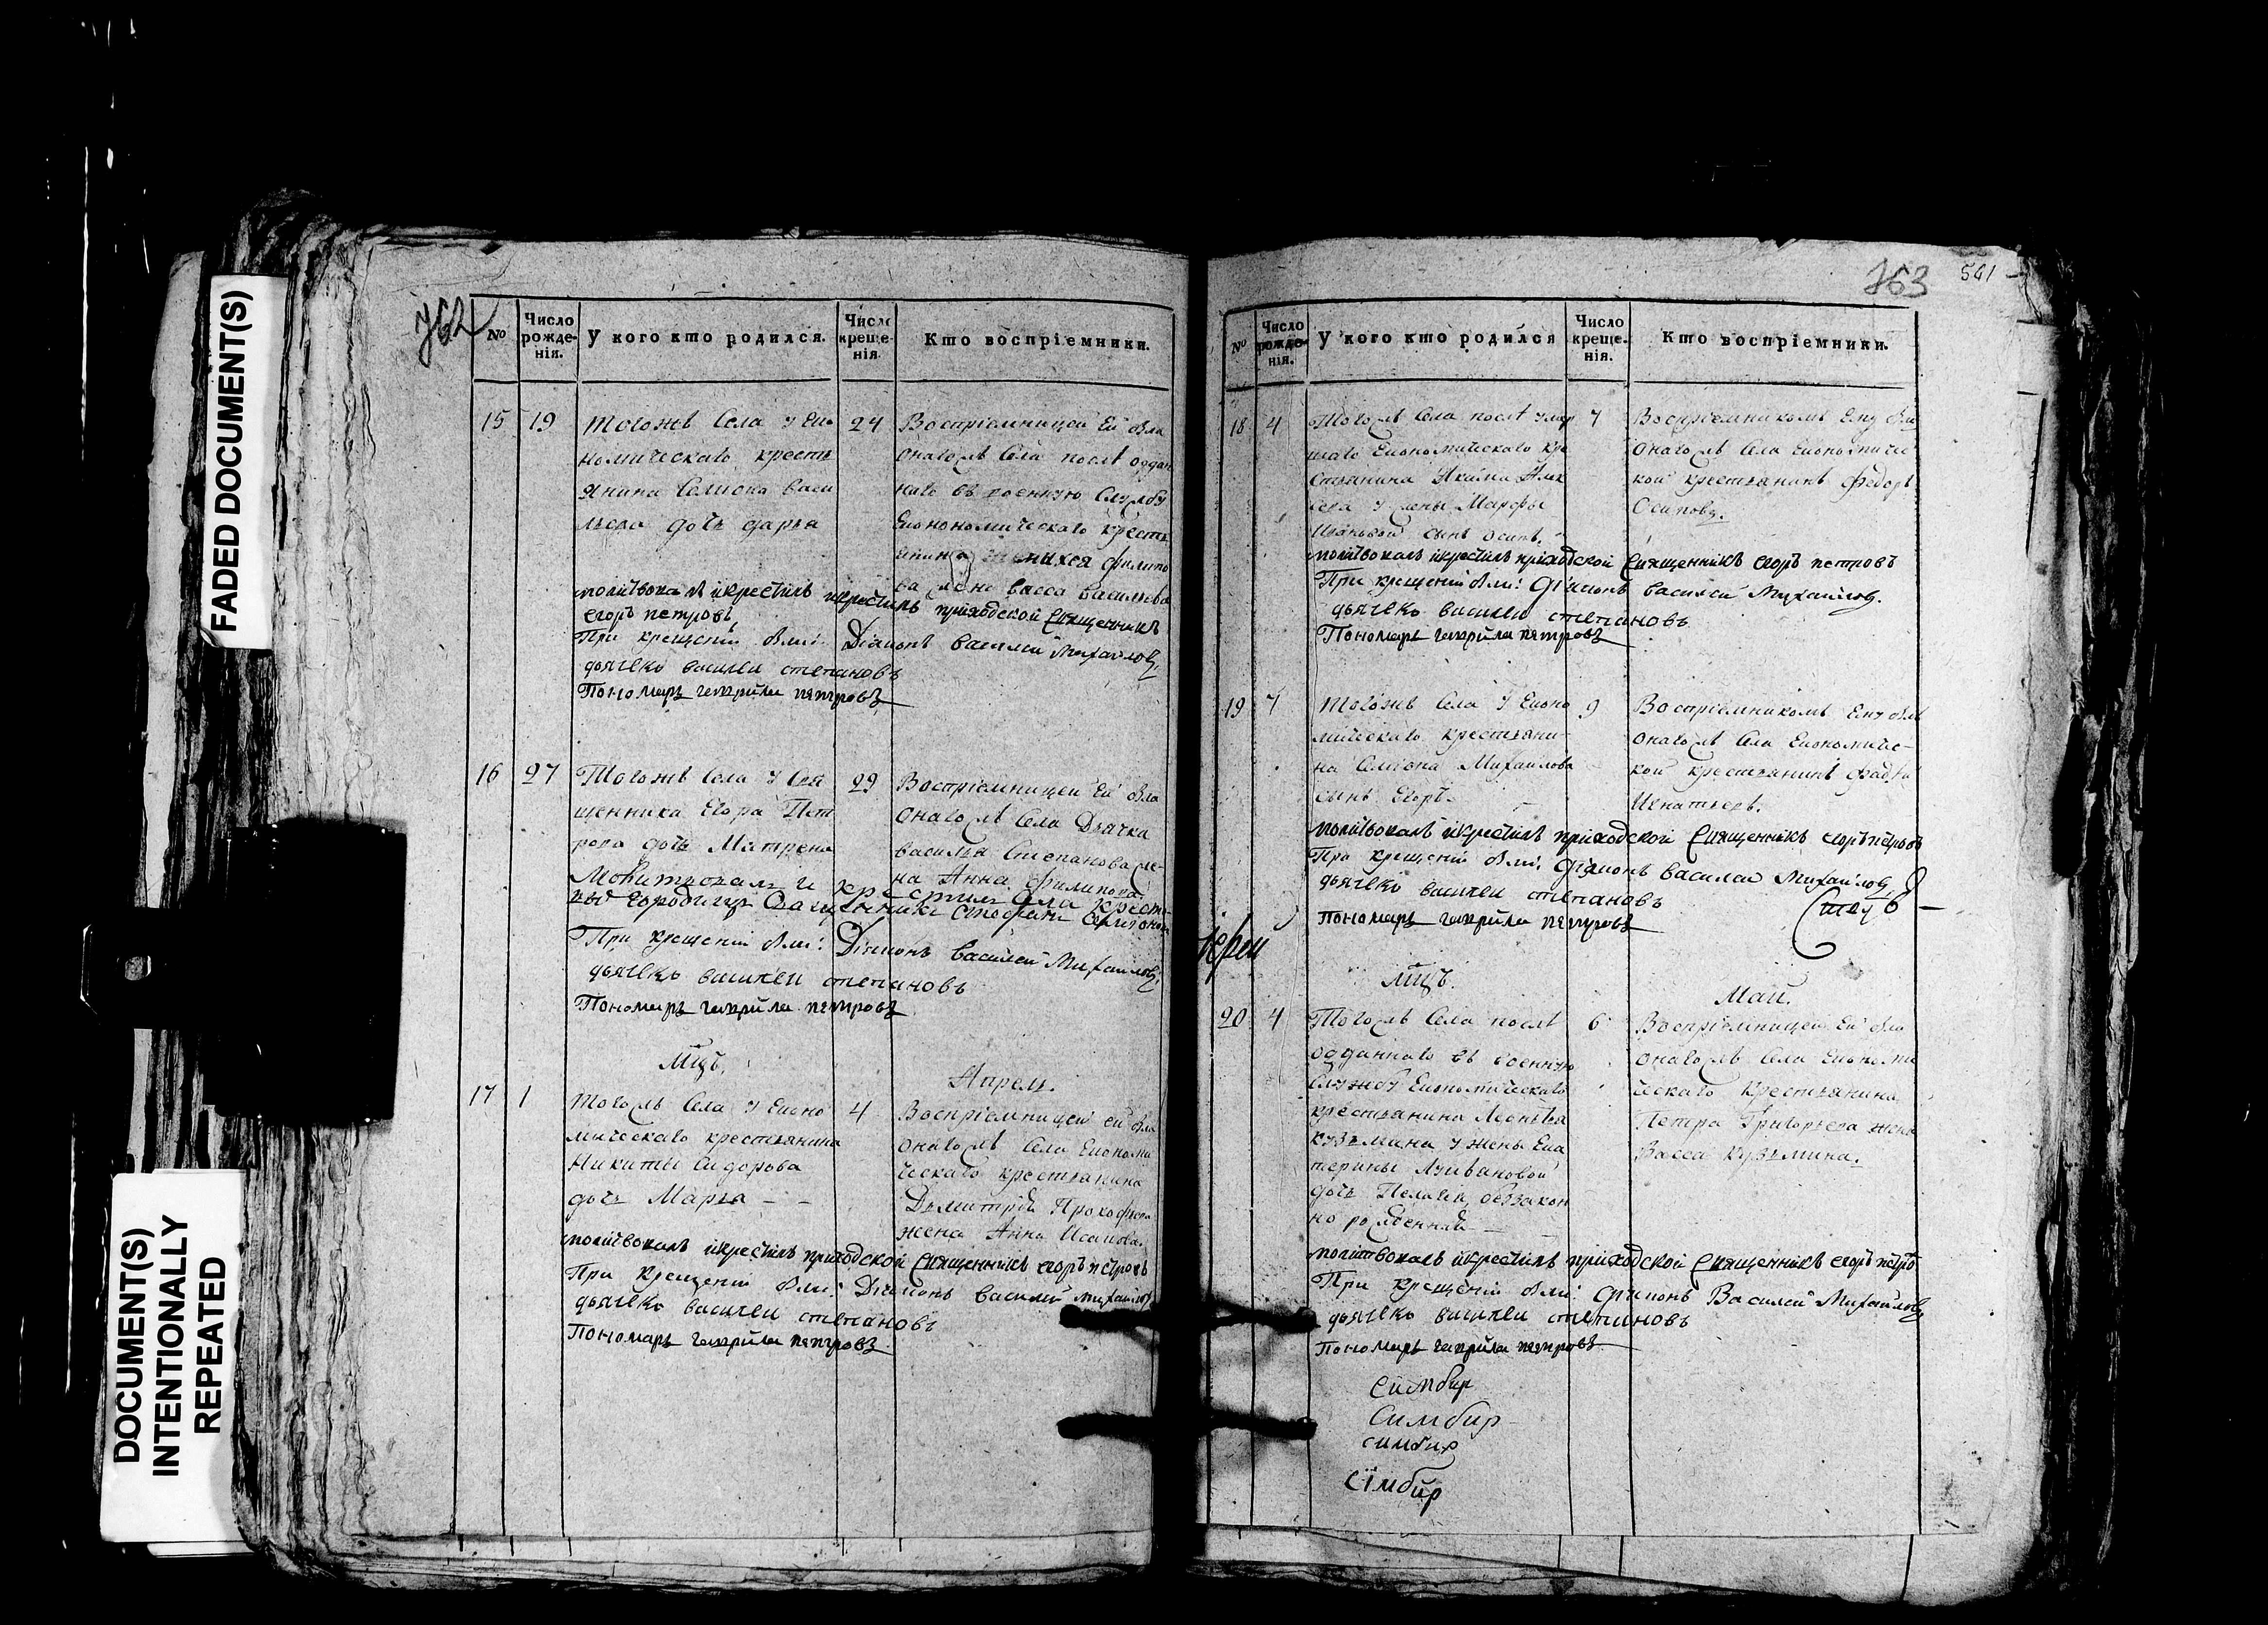 FADED DOCUMENT(S)
DOCUMENT(S)
INTENTIONALLY
REPEATED
762
№
Число рожде-нія.
У кого кто родился.
Число креще-нія.
Кто воспріемники.
15 19
24
тогожъ Села у Еко
номическаго кресть
янина Семиона Васи
льева дочь дарья
Воспріемницей Ей была
онагожъ Села послѣ оддан
наго въ военную Службу
Економическаго кресть
янина филипо
ва жена васса васильева
молитвовалъ икрестилъ икрестилъ приходской Священникъ
егоръ петровъ
При крещеніи были: Діаконъ василей Михайловъ
дьячекъ василей степановъ
Пономарь гаврила петровъ
16 27
29
Тогожъ Села у Свя
щенника Егора Пет
рова дочь Матрена
Воспріемницей Ей была
онагожъ Села Дьячка
василья Степанова же-
на Анна филипова
Молитвовалъ и крестилъ села крест
Священникъ Стефанъ
При крещеніи были: Діаконъ василей Михайловъ
дьячекъ василей степановъ
Пономарь гаврила петровъ
Мцъ.
Апрель.
17 1
4
Тогожъ Села у Еконо
мическаго крестьянина
Никиты Сидорова
дочь Марья - -
Воспріемницей ей была
онагожъ Села Економи
ческаго крестьянина
Дьмитрія Прокофьева
жена Анна Исакова.
молитвовалъ икрестилъ приходской Священникъ егоръ петровъ
При крещеніи были: Діаконъ василей михайловъ
дьячекъ василей степановъ
Пономарь гаврила петровъ
763
561
№
Число рожде-нія.
У кого кто родился
Число креще-нія.
Кто воспріемники.
18 4
7
Тогожъ Села послѣ умер
шаго Економическаго кре
стьянина Якима Алек
сеева у жены Марфы
Ивановой сынъ осипъ.
Воспріемникомъ Ему былъ
онагожъ Села Економиче
кой крестьянинъ федоръ
Осиповъ.
молитвовалъ икрестилъ приходской Священникъ егоръ петровъ
При крещеніи были: Діаконъ василей Михайловъ.
дьячекъ василеи степановъ
Пономарь гаврила петровъ
19 7
9
Тогожъ Села у Еконо
мическаго крестьяни-
на Семиона Михайлова
сынъ Егоръ.
Воспріемникомъ Ему былъ
онагожъ Села Економиче-
кой крестьянинъ фадѣй
Игнатьевъ.
молитвовалъ икрестилъ приходской Священникъ егоръ петровъ
При крещеніи были: Діаконъ василей Михайловъ
дьячекъ василеи степановъ
Пономарь гаврила петровъ
іереи
Мцъ.
Май.
20 4
6
Тогожъ Села послѣ
одданнаго въ военную
Службу Економическаго
крестьянина Леонтья
кузьмина у жены Ека
терины
дочь Пелагея беззакон
но рожденная
Воспріемницей Ей была
онагожъ Села Економи
ческаго крестьянина
Петра Григорьева жена
Васса Кузьмина.
молитвовалъ икрестилъ приходской Священникъ егоръ петро
При крещеніи были: Діаконъ Василей Михайловъ
дьячекъ василеи степановъ
Пономарь гаврила петровъ
Симбир
Симбир
симбир
Сїмбир